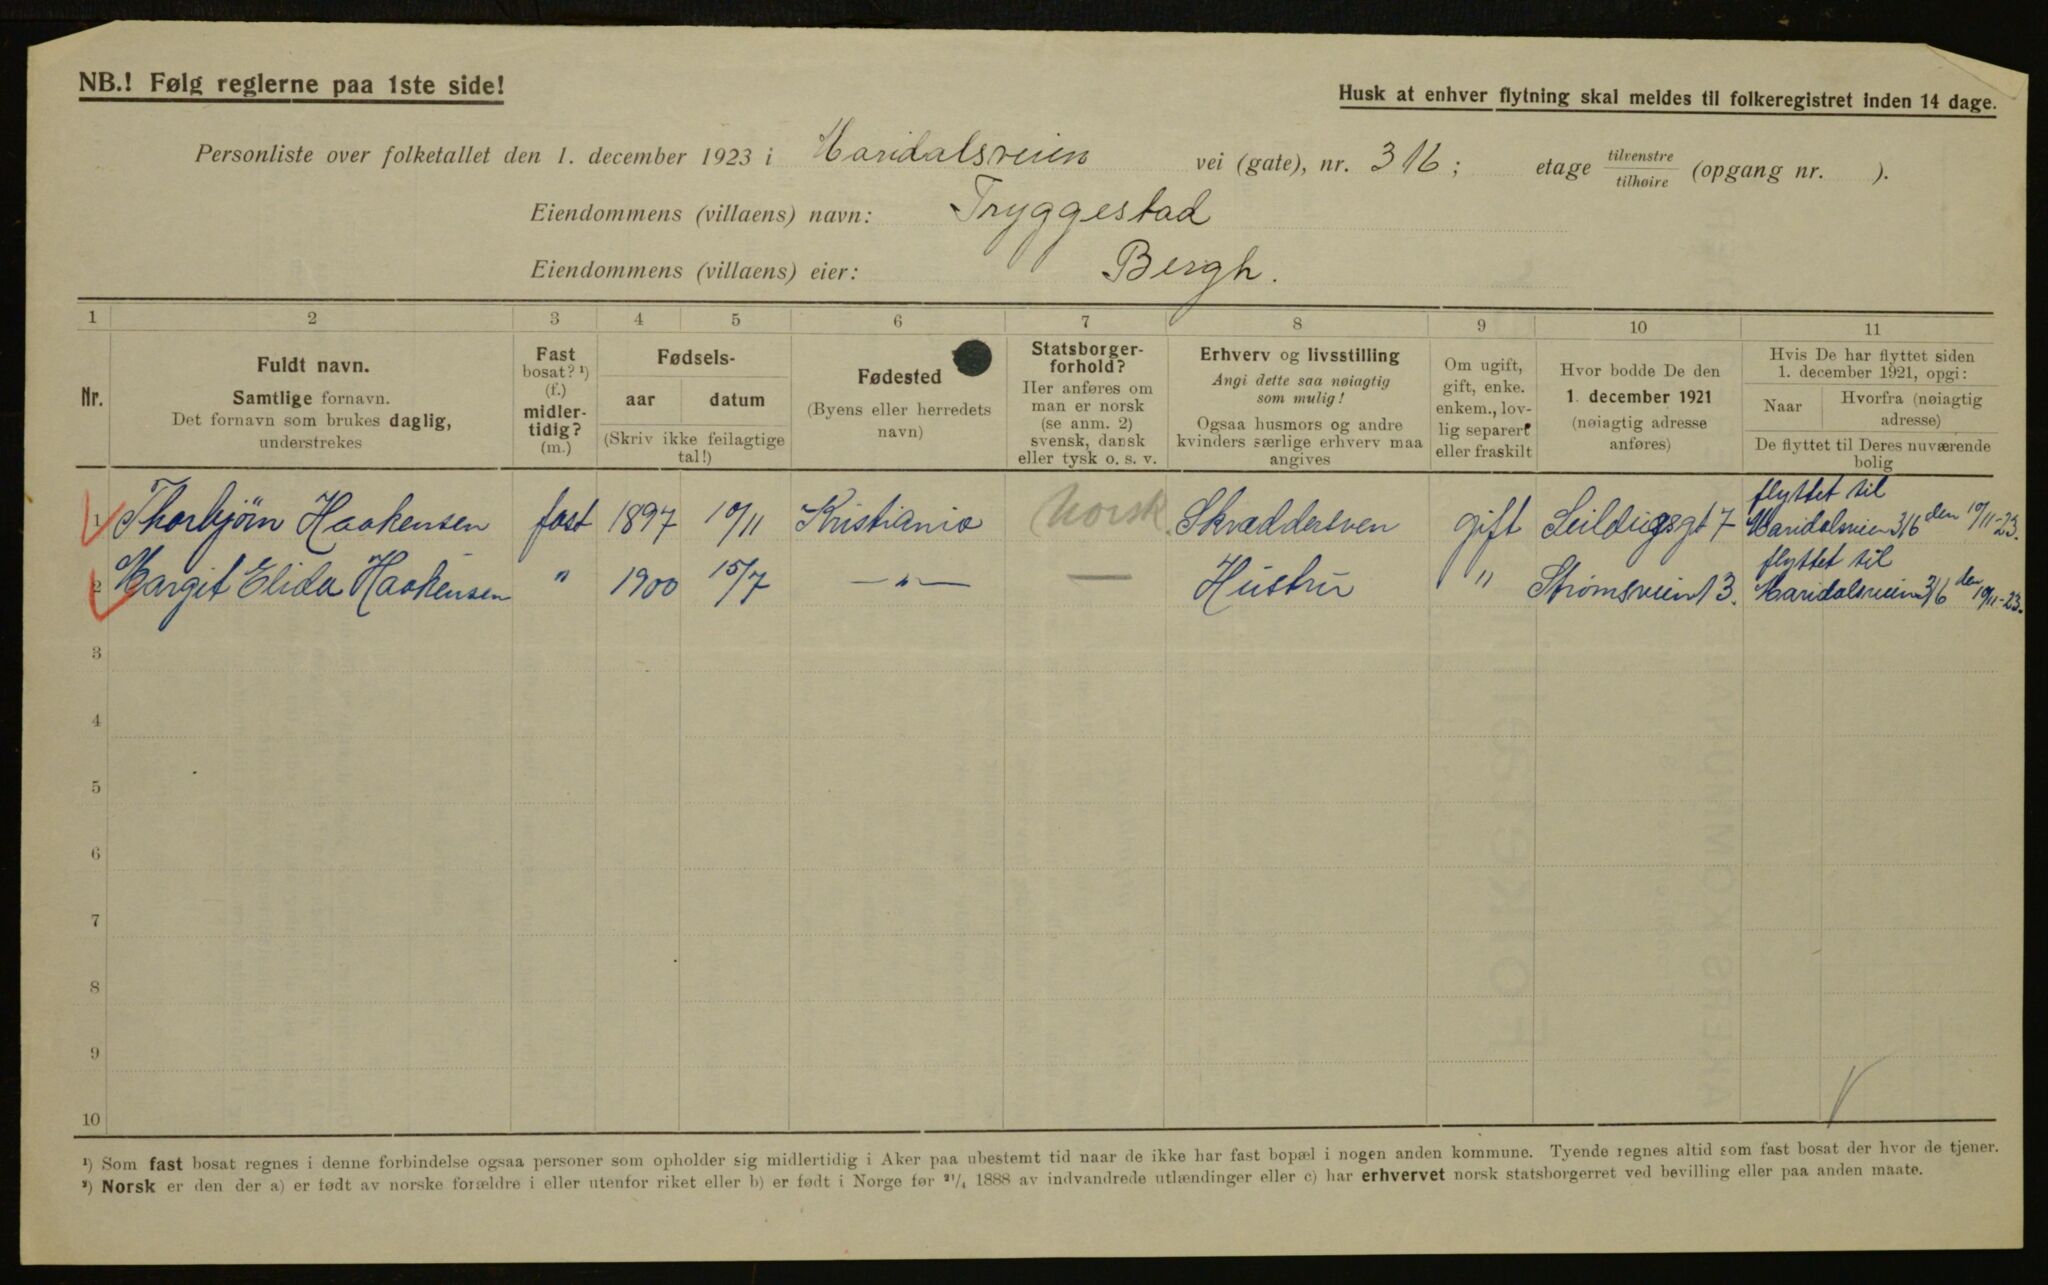 NB.! Følg reglerne paa 1ste side!
Husk at enhver flytning skal meldes til folkeregistret inden 14 dage.
Personliste over folketallet den 1. december 1923 i Maridalsveien vei (gate), nr. 316; etage tilvenstre / tilhøire (opgang nr. ).
Eiendommens (villaens) navn: Tryggestad
Eiendommens (villaens) eier: Bergh.
1 2 3 4 5 6 7 8 9 10 11
Nr.
Fuldt navn.
Samtlige fornavn.
Det fornavn som brukes daglig,
understrekes
Fast
bosat? ¹)
(f.)
midler-
tidig?
(m.)
Fødsels-
aar datum
(Skriv ikke feilagtige
tal!)
Fødested
(Byens eller herredets
navn)
Statsborger-
forhold?
Her anføres om
man er norsk
(se anm. 2)
svensk, dansk
eller tysk o. s. v.
Erhverv og livsstilling
Angi dette saa nøiagtig
som mulig!
Ogsaa husmors og andre
kvinders særlige erhverv maa
angives
Om ugift,
gift, enke.
enkem., lov-
lig separert
eller fraskilt
Hvor bodde De den
1. december 1921
(nøiagtig adresse
anføres)
Hvis De har flyttet siden
1. december 1921, opgi:
Naar Hvorfra (nøiagtig
adresse)
De flyttet til Deres nuværende
bolig
1 Thorbjörn Haakensen fast 1897 10/11 Kristiania Norsk Skræddersven gift Seildugsgt 7 flyttet til
Maridalsveien 316 den 10/11-23.
2 Margit Elida Haakensen " 1900 15/7 —"— — Hustru " Strømsveien 13. flyttet til
Maridalsveien 316 den 10/11-23.
3
4
5
6
7
8
9
10
¹) Som fast bosat regnes i denne forbindelse ogsaa personer som opholder sig midlertidig i Aker paa ubestemt tid naar de ikke har fast bopæl i nogen anden kommune. Tyende regnes altid som fast bosat der hvor de tjener.
²) Norsk er den der a) er født av norske forældre i eller utenfor riket eller b) er født i Norge før 21/4 1888 av indvandrede utlændinger eller c) har erhvervet norsk statsborgerret ved bevilling eller paa anden maate.